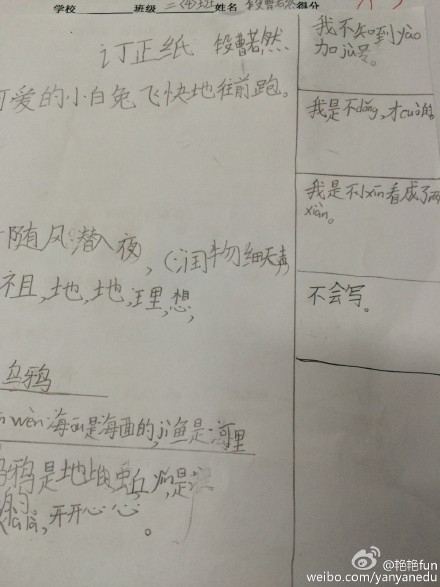 学校 班级 二(4)班 姓名 段曹若然 得分
订正纸 段曹若然
可爱的小白兔飞快地往前跑。
随风潜入夜,(润物细无声)
祖,地,地,理,想,
乌鸦
wèn 海면是海面的,jì鱼是河里
乌鸦是地上,蚯蚓,是
的
开开心心。
我不知到yào
加jù号。
我是不dǒng,才cuò的。
我是不小xīn看成了两
xiàn。
不会写。
@艳艳fun
weibo.com/yanyanedu